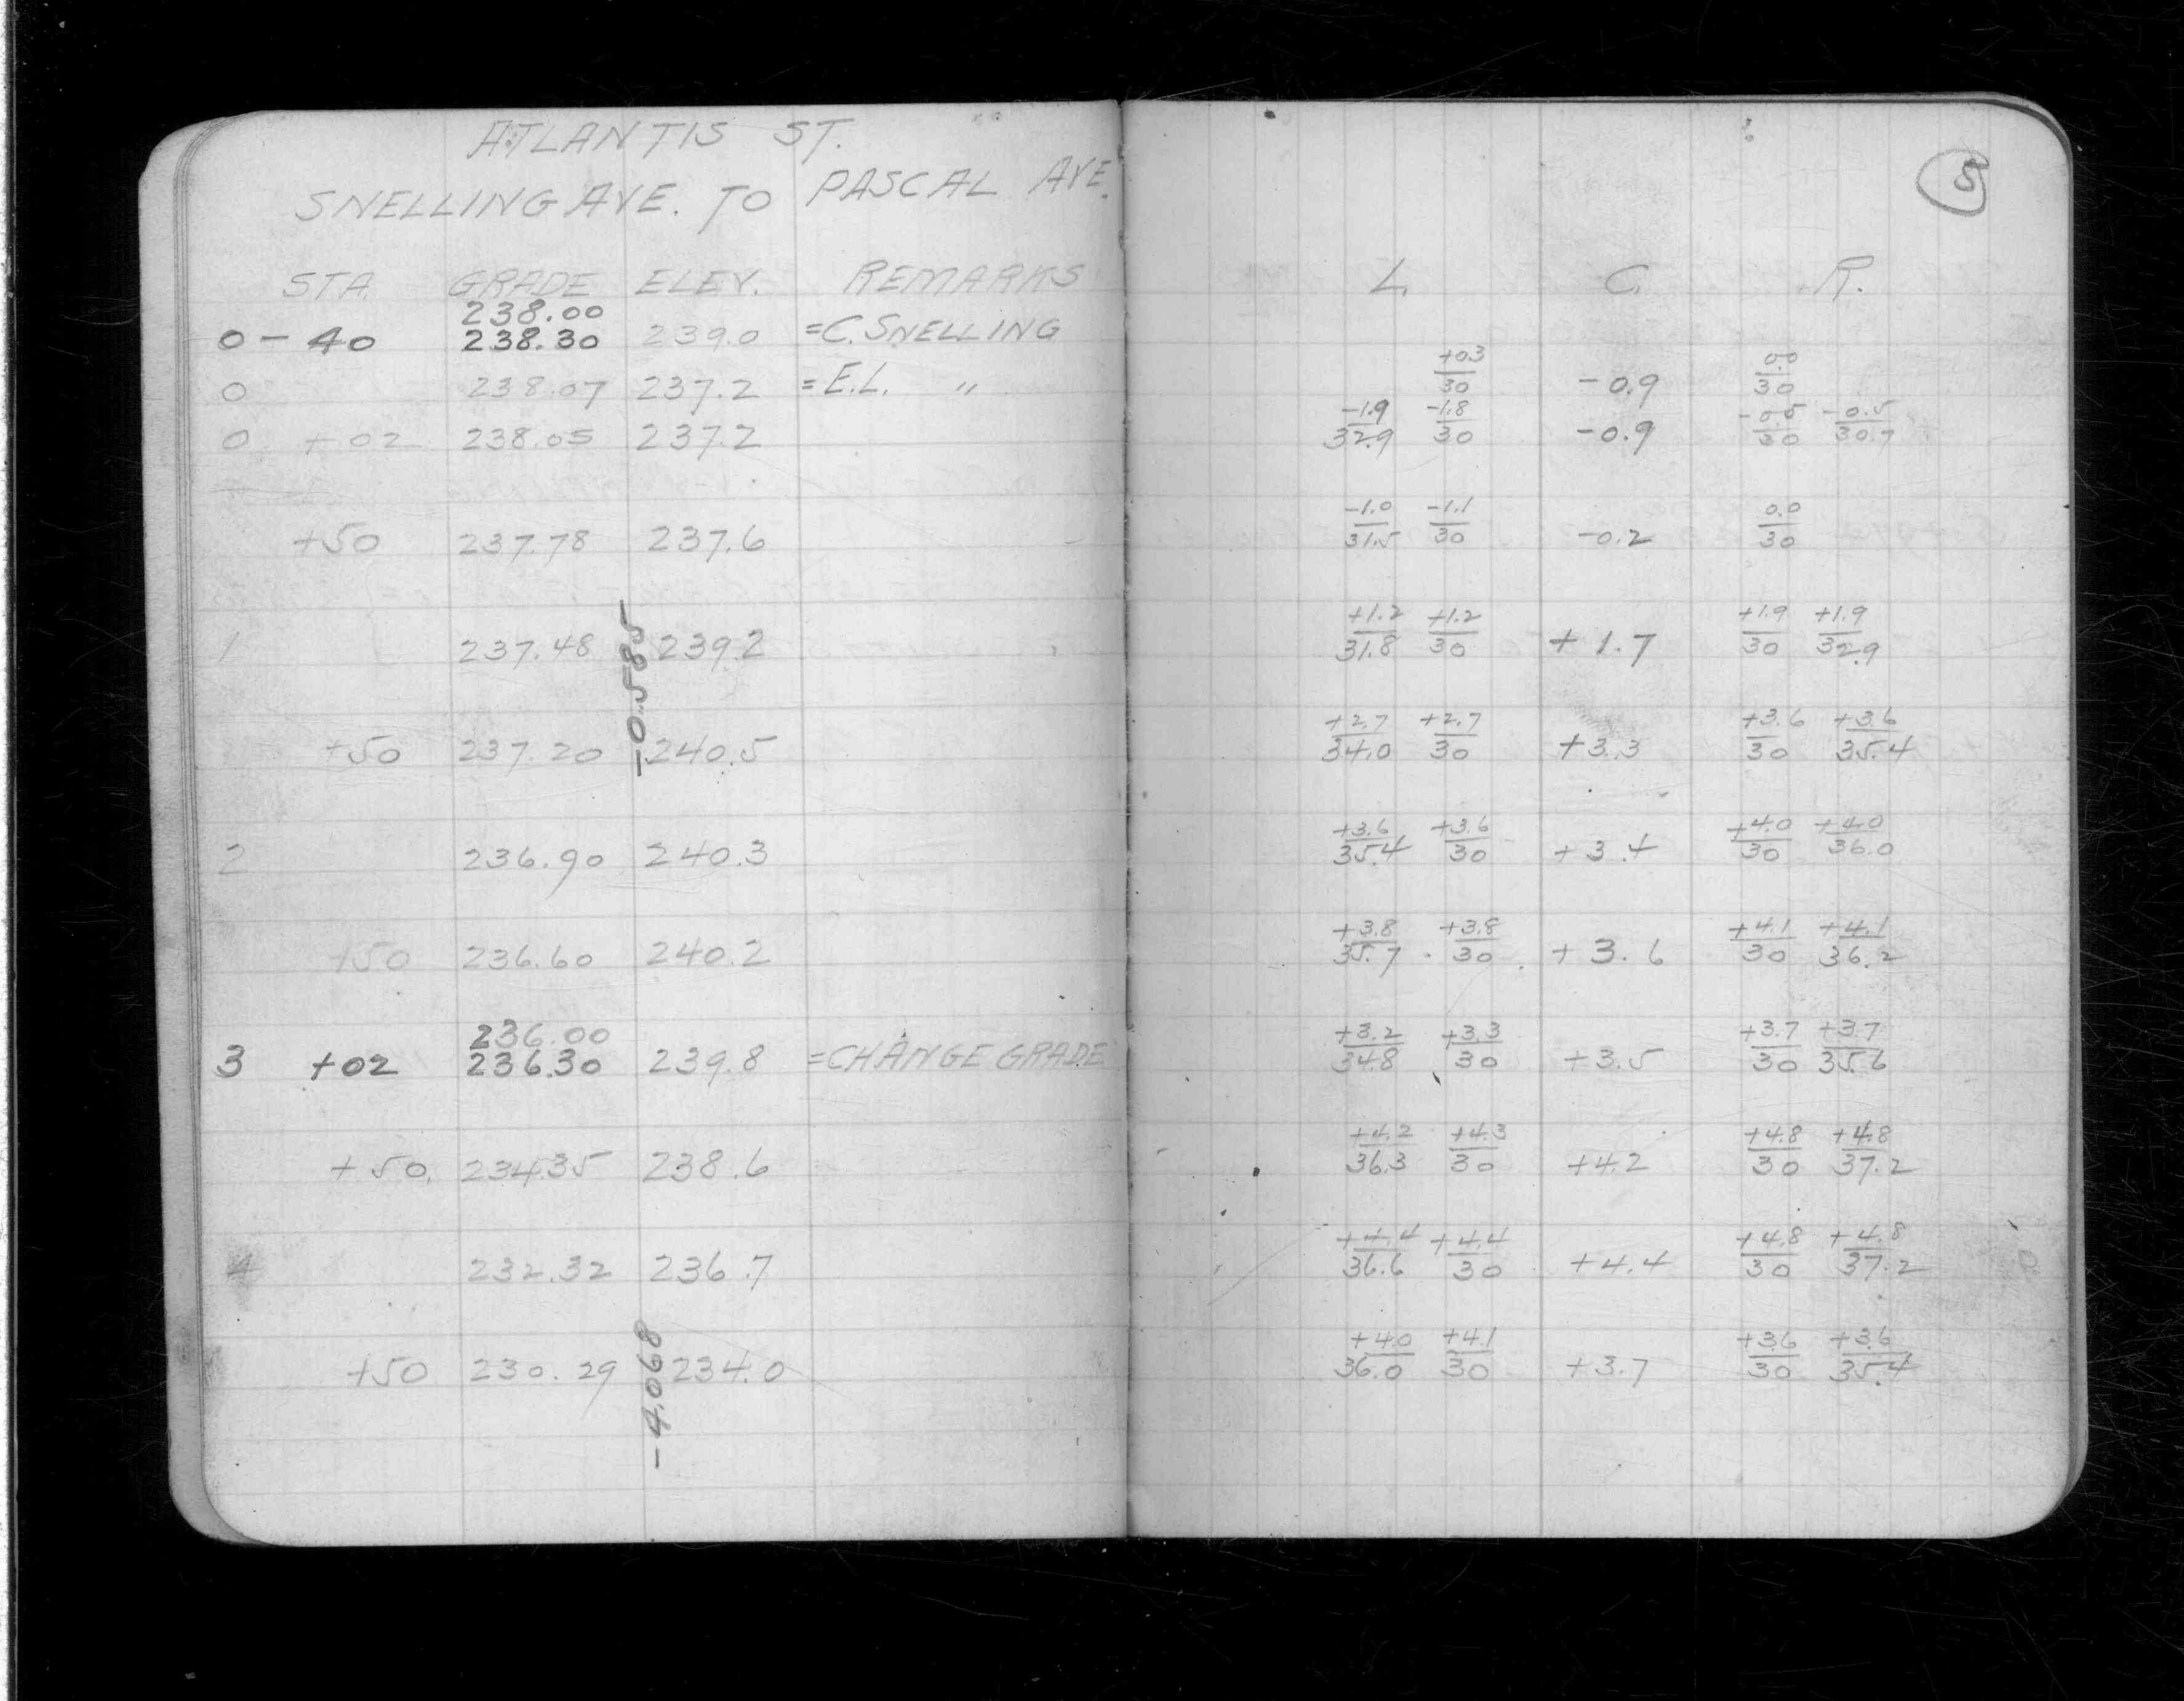 ATLANTIS ST.
SNELLING AVE. TO PASCAL AVE.
STA. GRADE ELEV. REMARKS
238.00
0 - 40 238.30 239.0 =C. SNELLING
0 238.07 237.2 =E.L. "
0 +02 238.05 237.2
+50 237.78 237.6
1 237.48 239.2
-0.585
+50 237.20 240.5
2 236.90 240.3
+50 236.60 240.2
236.00
3 +02 236.30 239.8 =CHANGE GRADE
+50. 234.35 238.6
4 232.32 236.7
+50 230.29 234.0
-4.068
5
L. C. R.
+0.3 0.0
30 -0.9 30
-1.9 -1.8 -0.5 -0.5
32.9 30 -0.9 30 30.7
-1.0 -1.1 0.0
31.5 30 -0.2 30
+1.2 +1.2 +1.9 +1.9
31.8 30 +1.7 30 32.9
+2.7 +2.7 +3.6 +3.6
34.0 30 +3.3 30 35.4
+3.6 +3.6 +4.0 +4.0
35.4 30 +3.4 30 36.0
+3.8 +3.8 +4.1 +4.1
35.7 30 +3.6 30 36.2
+3.2 +3.3 +3.7 +3.7
34.8 30 +3.5 30 35.6
+4.2 +4.3 +4.8 +4.8
36.3 30 +4.2 30 37.2
+4.4 +4.4 +4.8 +4.8
36.6 30 +4.4 30 37.2
+4.0 +4.1 +3.6 +3.6
36.0 30 +3.7 30 35.4